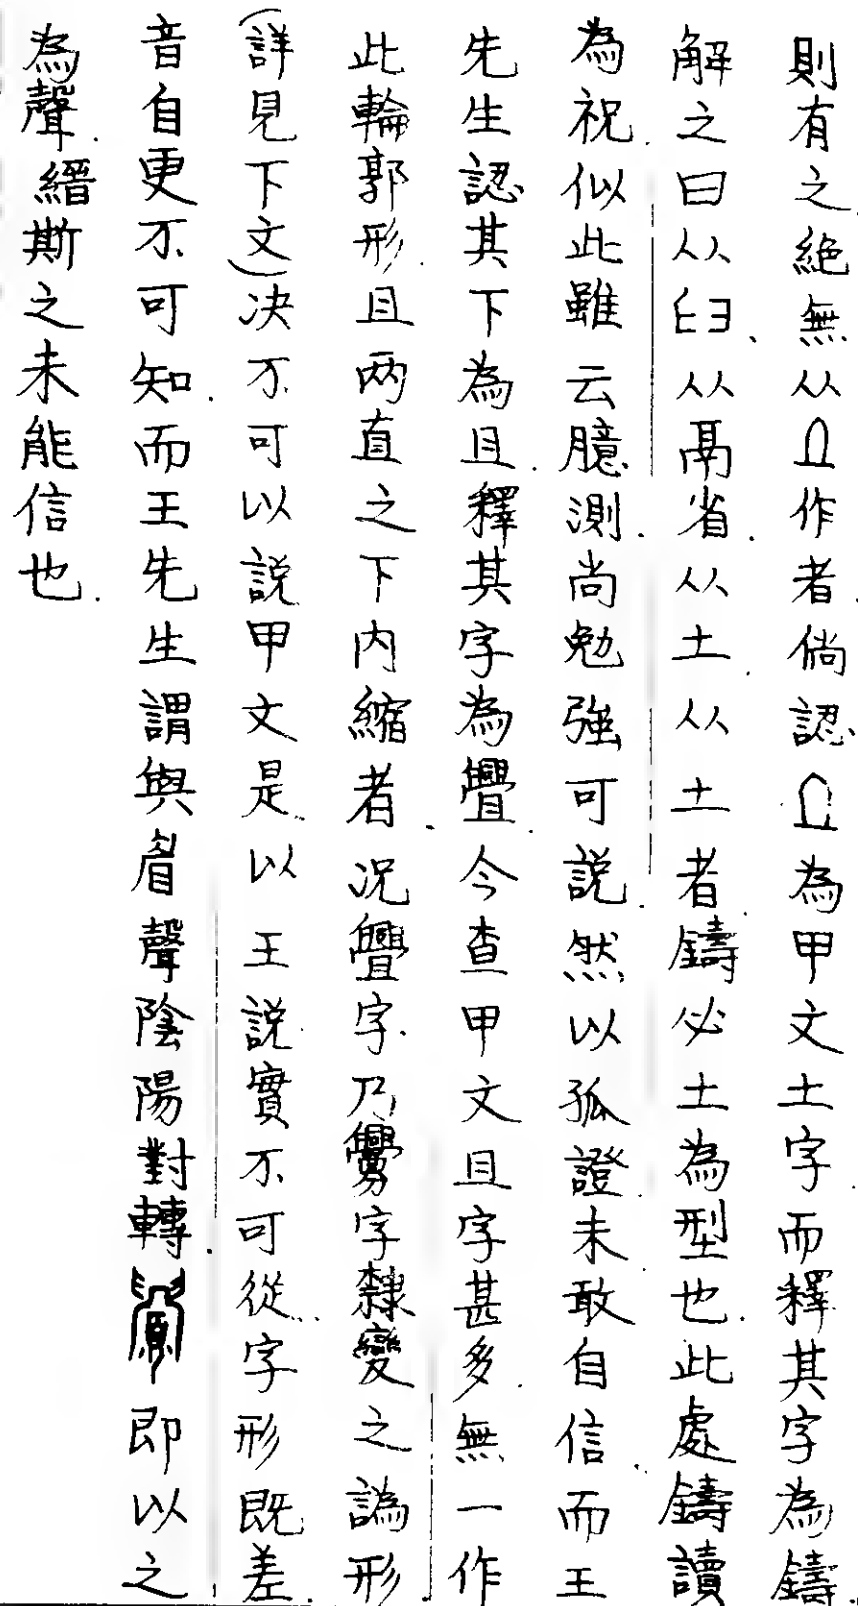 則有之絕無从作者倘認為甲文土字而釋其字為鑄
解之曰从𦥑、从鬲省.从土.从土者鑄必土為型也.此處鑄讀
為祝.似此雖云臆測.尚勉強可説.然以孤證.未敢自信.而王
先生認其下為且.釋其字為舋.今查甲文且字甚多.無一作
此輪郭形.且两直之下内縮者.况舋字乃釁字隸變之譌形
(詳見下文)决不可以説甲文是以王説實不可從.字形既差.
音自更不可知.而王先生謂與眉聲陰陽對轉.即以之
為聲.縉斯之未能信也.